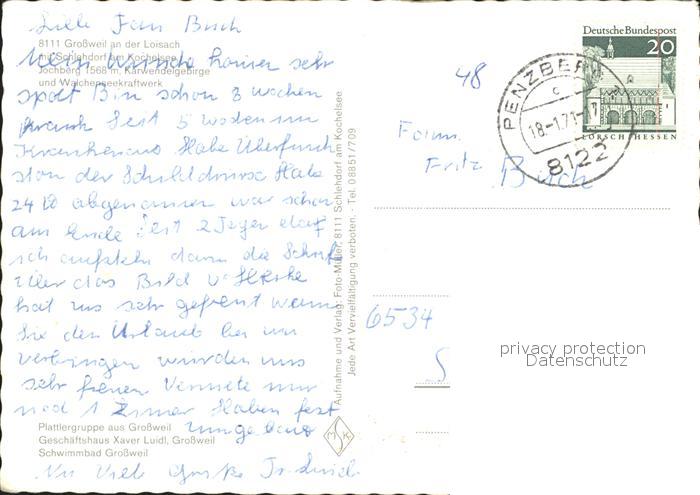 Liebe Frau Busch
8111 Großweil an der Loisach
mit Schlehdorf am Kochelsee
Jochberg 1568 m, Karwendelgebirge
und Walchenseekraftwerk
Wünsche kommen sehr
spät Bin schon 8 wochen
krank seit 5 woden im
Krankenaus Habe Überfunk
ston der Schilddruse Habe
24 tb abgenommen war schon
am Ende seit 2 Tagen darf
ich aufstehn dann die Schrift
Über das Bild v
hat uns sehr gefreut wenn
Sie den Urlaub bei uns
verbringen würden uns
sehr freuen Vermiete nur
noch 1 Zimer Haben fest
umgebaut
Plattlergruppe aus Großweil
Geschäftshaus Xaver Luidl, Großweil
Schwimmbad Großweil
Nu Viele Grüße
Aufnahme und Verlag: Foto-Müller, 8111 Schlehdorf am Kochelsee
Jede Art Vervielfältigung verboten. · Tel. 08851/709
MSK
48
Deutsche Bundespost
20
LORSCH/HESSEN
PENZBERG
c
18-1.71-17
8122
Fam.
Fritz Busch
6534
S
privacy protection
Datenschutz